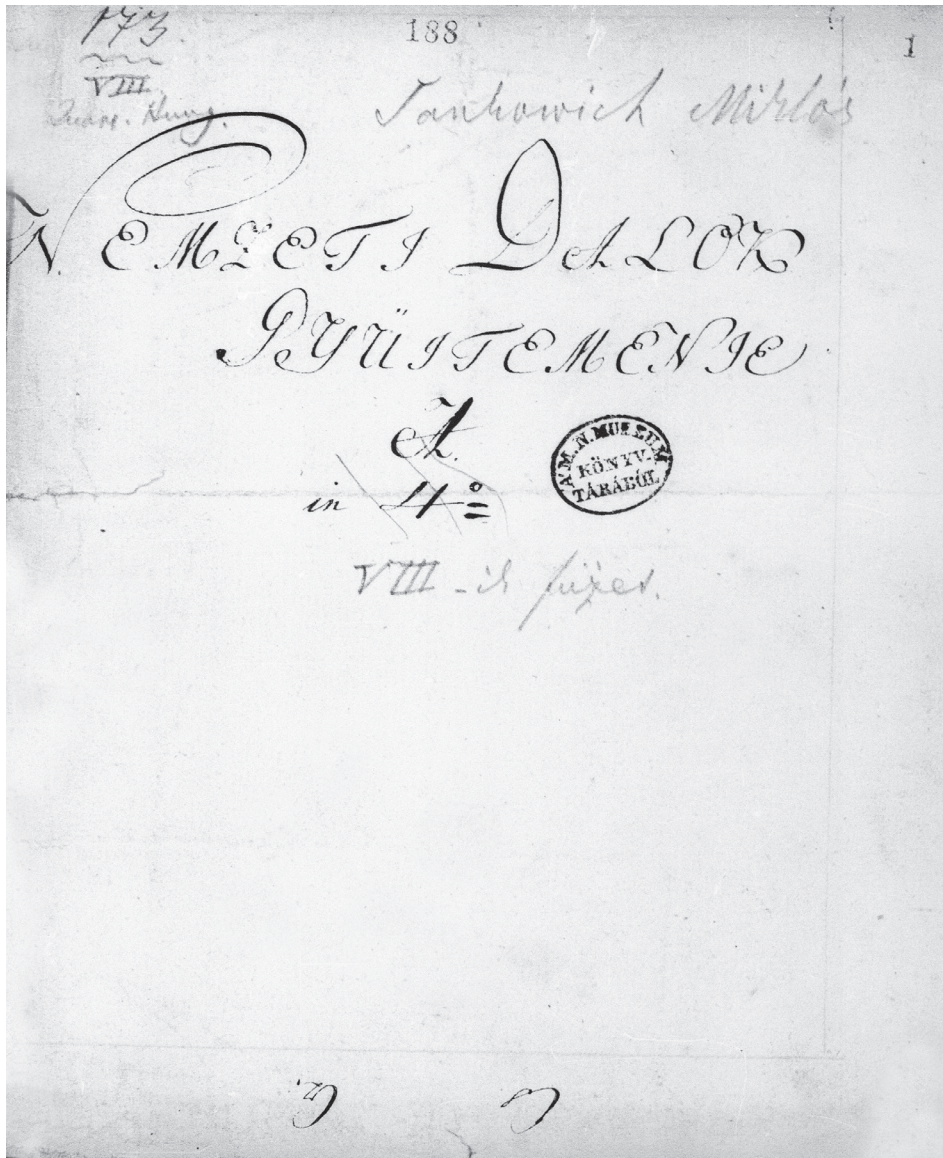 173. 188 1
VIII
Quart. Hung.
Jankowich Miklós
NEMZETI DALOK
GYÜITEMENIE
A.
in 4º
A M. N. MUZEUM
KÖNYV-
TÁRÁBÓL
VIII-ik füzet.